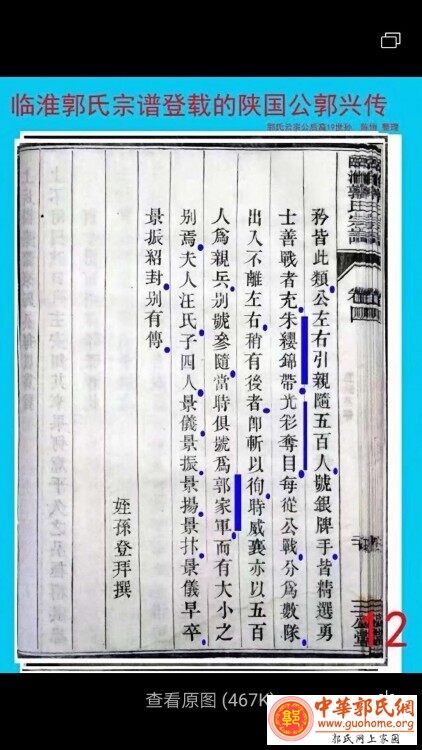 临淮郭氏宗谱登载的陕国公郭兴传
矜皆此類公左右引親隨五百人號銀牌手皆精選勇
士善戰者充朱纓錦帶光彩奪目每從公戰分爲數隊
出入不離左右稍有後者卽斬以徇時威襄亦以五百
人爲親兵别號參隨當時俱號爲郭家軍而有大小之
别焉夫人汪氏子四人景儀景振景揚景抃景儀早卒
景振紹封别有傳
姪孫登拜撰
臨淮郭氏宗譜
卷四
12
查看原图 (467K)
中華郭氏網
www.guohome.org
郭氏网上家园